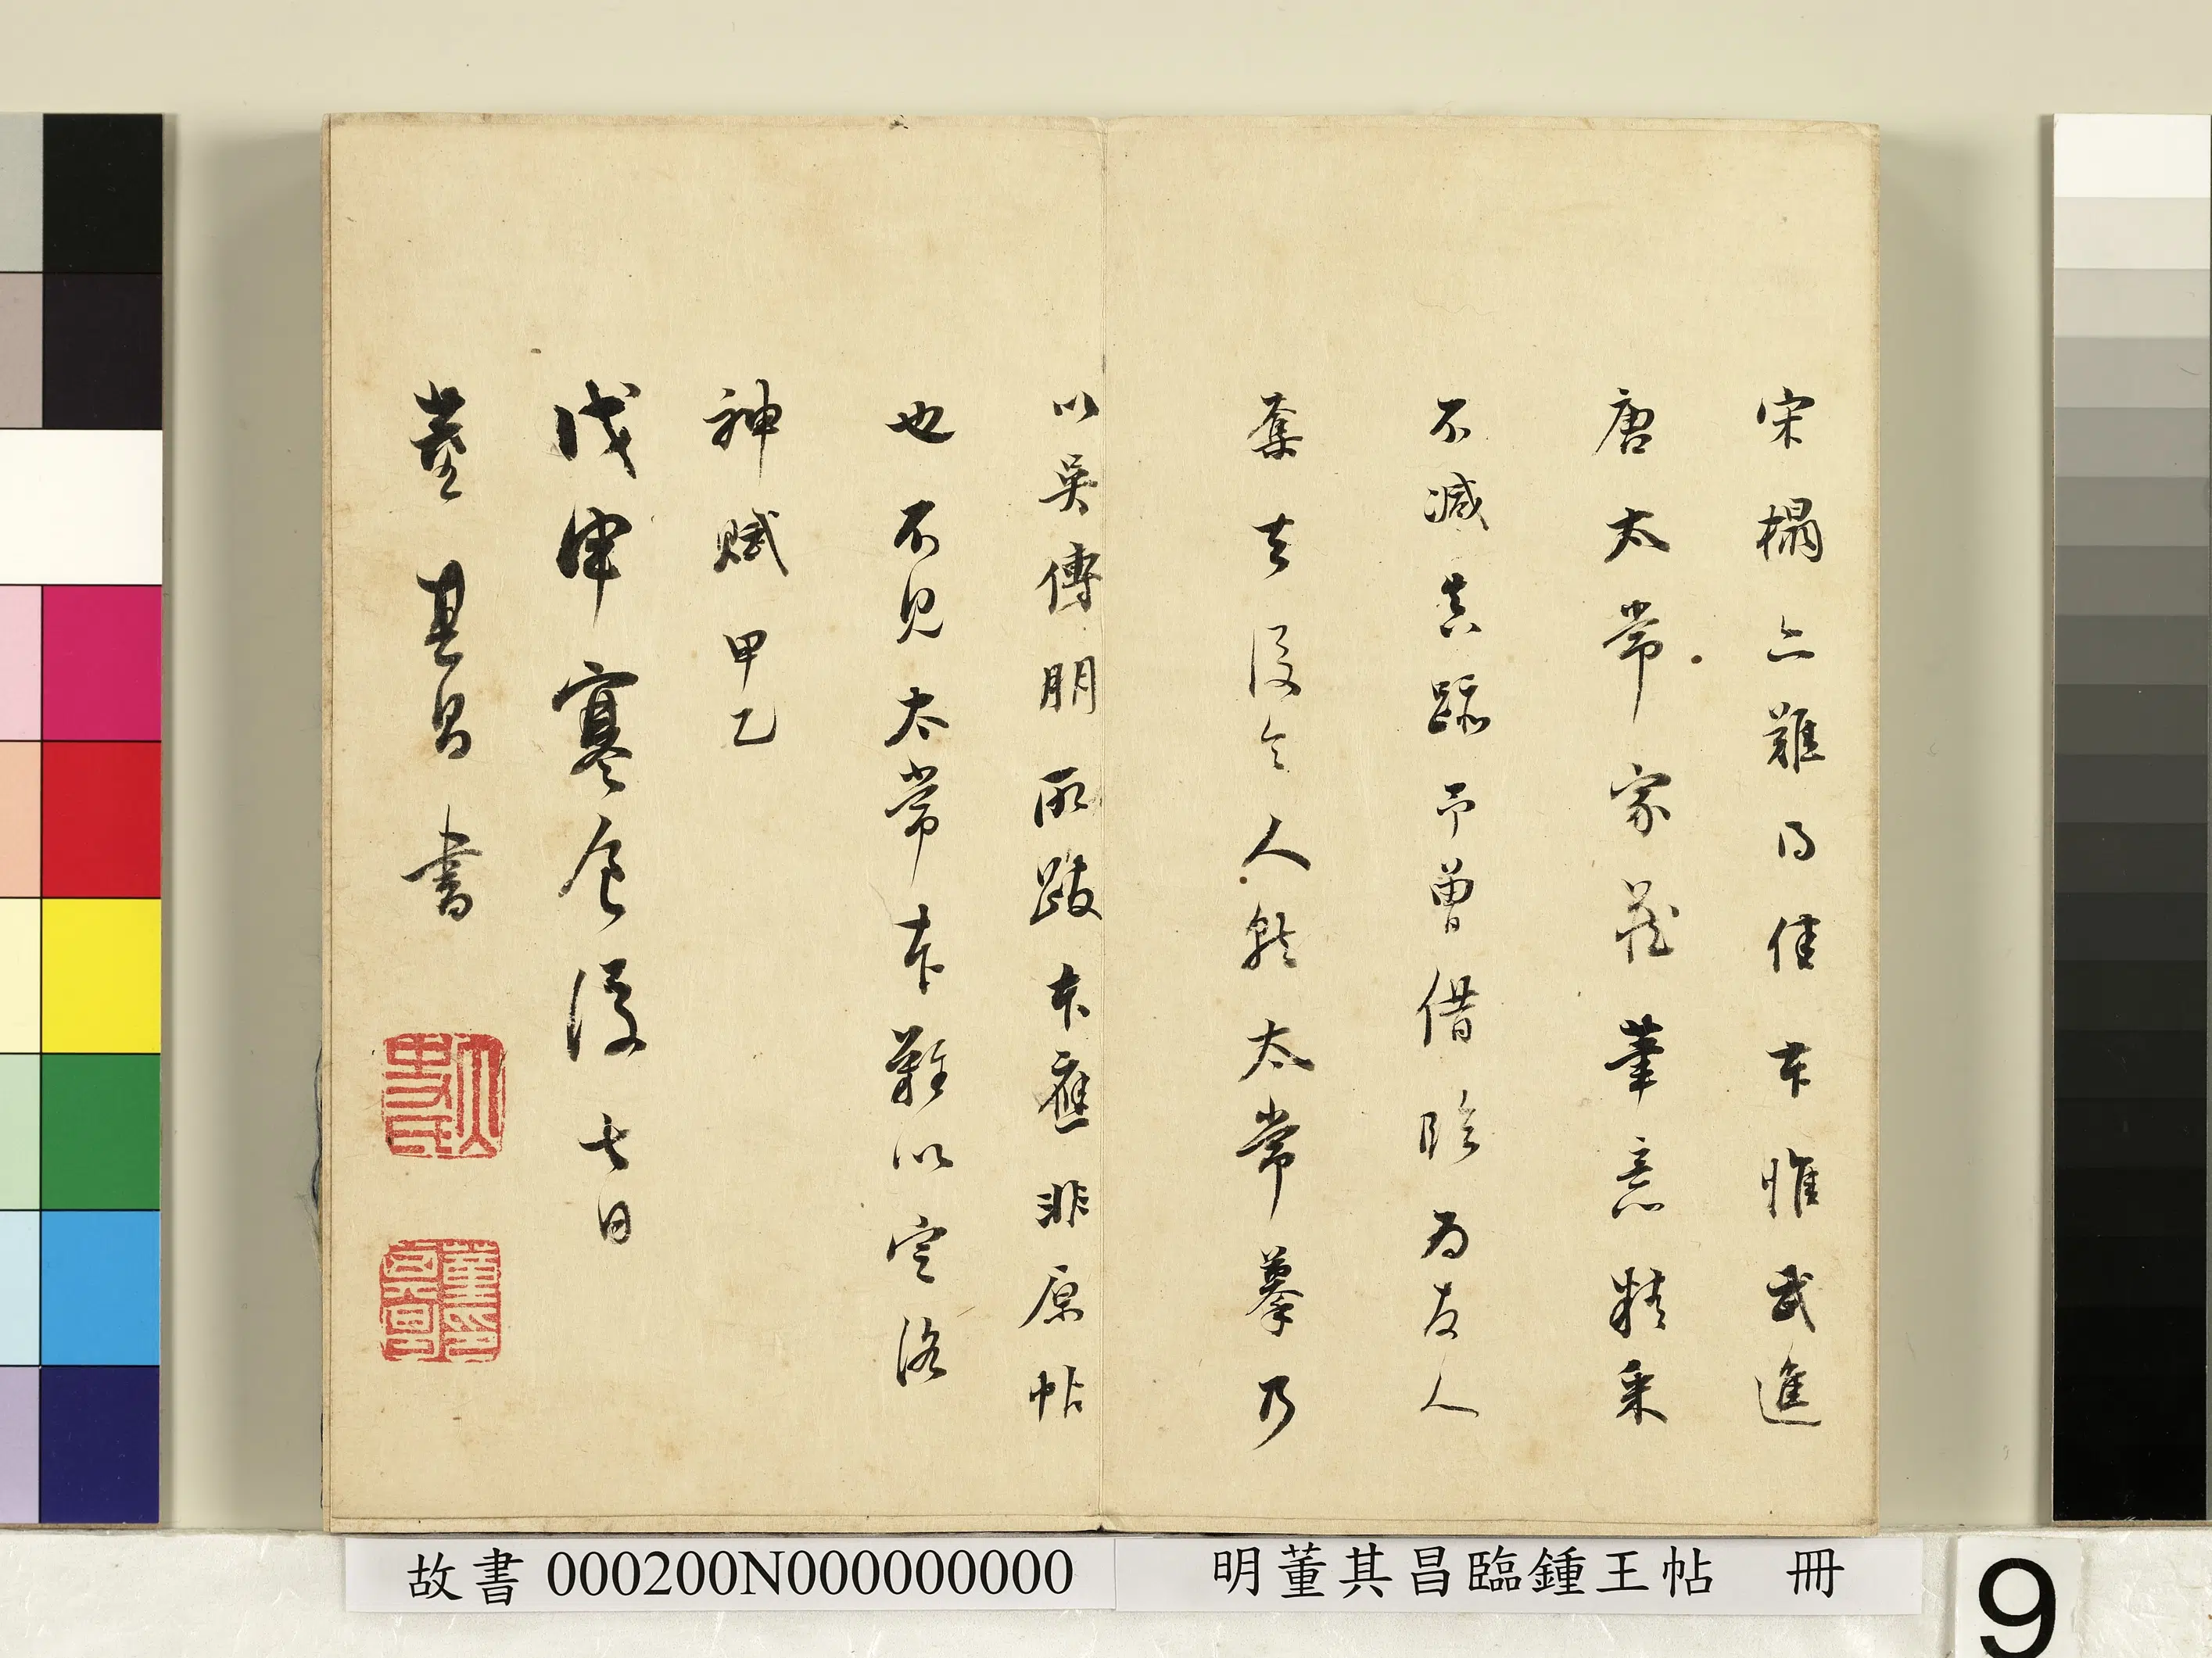 宋榻亦難得佳本惟武進
唐太常家藏筆意精采
不減真跡予曾借臨為友人
奪去後令人就太常摹乃
以吳傅朋所跋本應非原帖
也不見太常本難以定洛
神賦甲乙
戊申寒食後七日
董其昌書
太史氏
董印其昌
明董其昌臨鍾王帖 冊
故書 000200N000000000
9